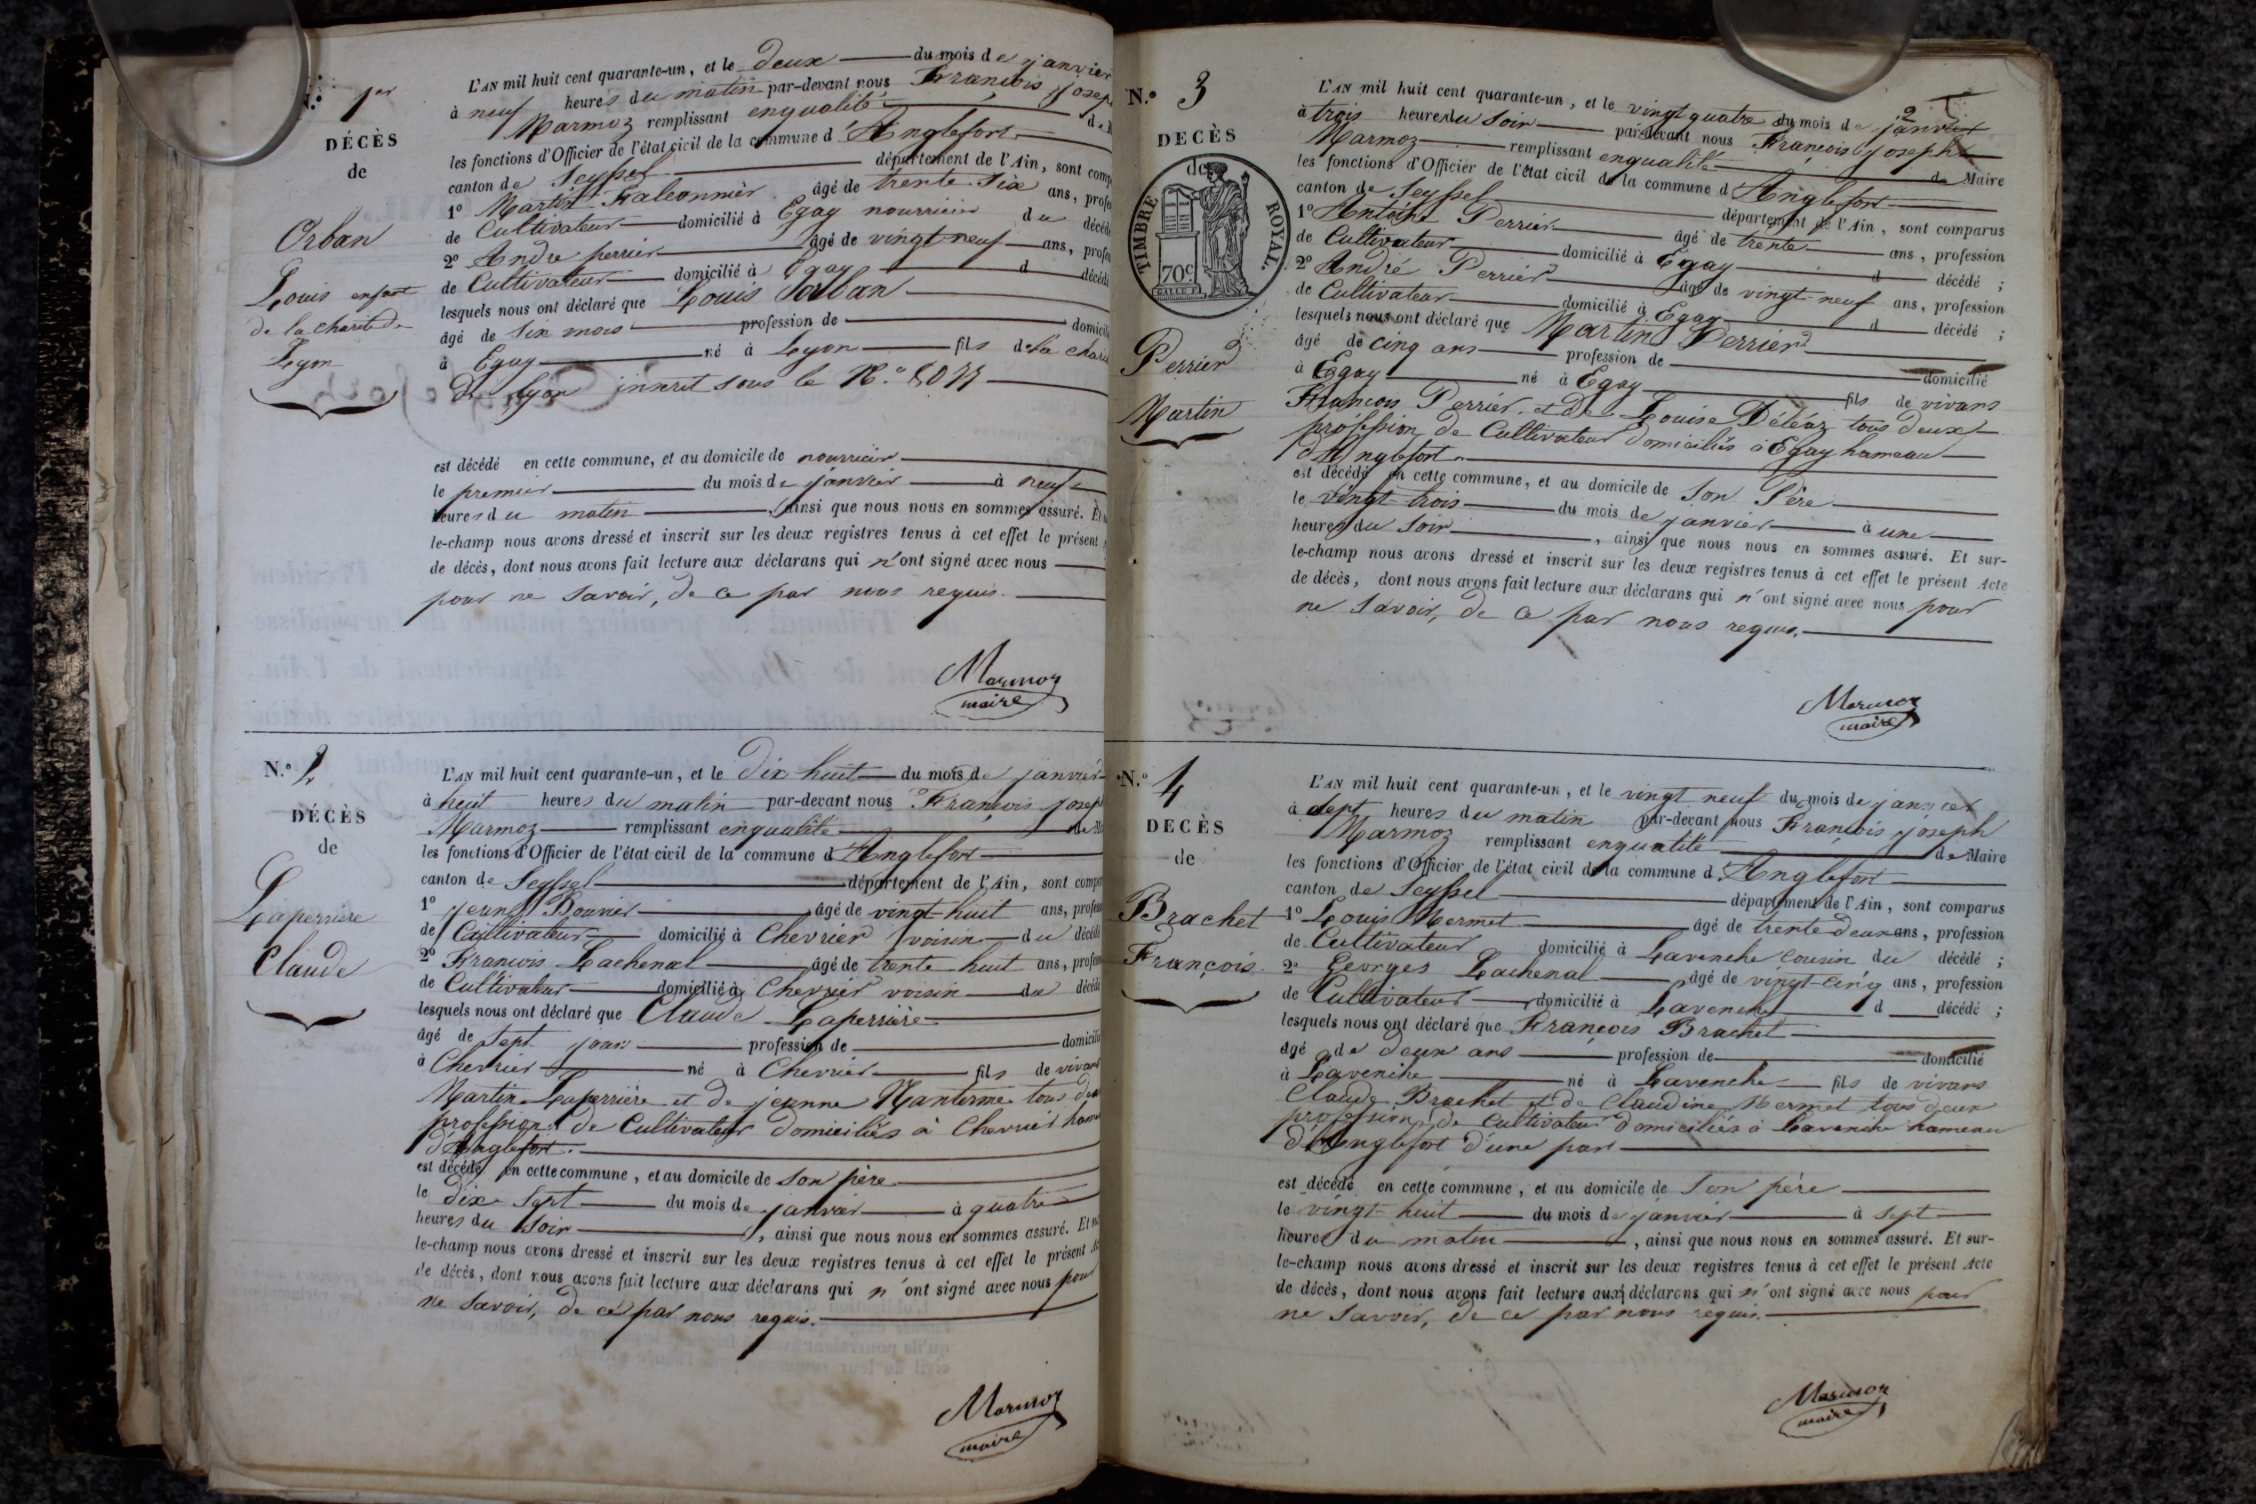 N.° 1er
DÉCÈS
de
Orban
Louis enfant
de la charité de
Lyon
L'AN mil huit cent quarante-un, et le deux du mois de janvier
à neuf heures du matin par-devant nous François Joseph
Marmoz remplissant enqualité de
les fonctions d'Officier de l'état civil de la commune d'Anglefort
canton de Seyssel département de l'Ain, sont comp
1° Martin Falconnier âgé de trente six ans, profe
de Cultivateur domicilié à Egay nourricier du décédé
2° Andre perrier âgé de vingt-neuf ans, profe
de Cultivateur domicilié à Egay d décédé
lesquels nous ont déclaré que Louis Orban
âgé de six mois profession de domicilié
à Egay né à Lyon fils de la charité
De Lyon inscrit sous le N.°
est décédé en cette commune, et au domicile de nourricier
le premier du mois de janvier à neuf
heures du matin, ainsi que nous nous en sommes assuré. Et
le-champ nous avons dressé et inscrit sur les deux registres tenus à cet effet le présent
de décès, dont nous avons fait lecture aux déclarans qui n'ont signé avec nous
pour ne savoir, de ce par nous requis.
Marmoz
maire
N.° 2
DÉCÈS
de
Laperrière
Claude
L'AN mil huit cent quarante-un, et le Dix huit du mois de janvier
à huit heures du matin par-devant nous François Joseph
Marmoz remplissant enqualité de M
les fonctions d'Officier de l'état civil de la commune d'Anglefort
canton de Seyssel département de l'Ain, sont compar
1° Bouvier âgé de vingt-huit ans, profess
de Cultivateur domicilié à Chevrier voisin du décédé
2° François Lachenal âgé de trente huit ans, profess
de Cultivateur domicilié à Chevrier voisin du décédé
lesquels nous ont déclaré que Claude Laperrière
âgé de sept jours profession de domicilié
à Chevrier né à Chevrier fils de vivans
Martin Laperrière et de jeanne Nanterme tous deux
profession de Cultivateur domiciliés à Chevrier hameau
d'Anglefort.
est décédé en cette commune, et au domicile de son père
le dix sept du mois de janvier à quatre
heures du soir, ainsi que nous nous en sommes assuré. Et
le-champ nous avons dressé et inscrit sur les deux registres tenus à cet effet le présent
de décès, dont nous avons fait lecture aux déclarans qui n'ont signé avec nous pour
ne savoir, de ce par nous requis.
Marmoz
maire
2
N.° 3
DECÈS
de
TIMBRE ROYAL.
70c
Perrier
Martin
L'AN mil huit cent quarante-un, et le vingt quatre du mois de janvier
à trois heures du soir par-devant nous François joseph
Marmoz remplissant enqualité de Maire
les fonctions d'Officier de l'état civil de la commune d'Anglefort
canton de Seyssel département de l'Ain, sont comparus
1° Antoine Perrier âgé de trente ans, profession
de Cultivateur domicilié à Egay d décédé ;
2° André Perrier âgé de vingt-neuf ans, profession
de Cultivateur domicilié à Egay d décédé ;
lesquels nous ont déclaré que Martin Perrier
âgé de cinq ans profession de domicilié
à Egay né à Egay fils de vivans
François Perrier et de Louise Déléaz tous deux
profession de Cultivateur domiciliés à Egay hameau
d'Anglefort
est décédé en cette commune, et au domicile de son Père
le vingt-trois du mois de janvier à une
heures du soir, ainsi que nous nous en sommes assuré. Et sur-
le-champ nous avons dressé et inscrit sur les deux registres tenus à cet effet le présent Acte
de décès, dont nous avons fait lecture aux déclarans qui n'ont signé avec nous pour
ne savoir, de ce par nous requis.
Marmoz
maire
N.° 4
DECÈS
de
Brachet
François
L'AN mil huit cent quarante-un, et le vingt neuf du mois de janvier
à sept heures du matin par-devant nous François joseph
Marmoz remplissant enqualité de Maire
les fonctions d'Officier de l'état civil de la commune d'Anglefort
canton de Seyssel département de l'Ain, sont comparus
1° Louis Mermet âgé de trente deux ans, profession
de Cultivateur domicilié à Lavenche cousin du décédé ;
2° Georges Lachenal âgé de vingt-cinq ans, profession
de Cultivateur domicilié à Lavenche d décédé ;
lesquels nous ont déclaré que François Brachet
âgé de deux ans profession de domicilié
à Lavenche né à Lavenche fils de vivans
Claude Brachet et de Claudine Mermet tous deux
profession de Cultivateur domiciliés à Lavenche hameau
d'Anglefort d'une part
est décédé en cette commune, et au domicile de son père
le vingt-huit du mois de janvier à sept
heures du matin, ainsi que nous nous en sommes assuré. Et sur-
le-champ nous avons dressé et inscrit sur les deux registres tenus à cet effet le présent Acte
de décès, dont nous avons fait lecture aux déclarans qui n'ont signé avec nous pour
ne savoir, de ce par nous requis.
Marmoz
maire